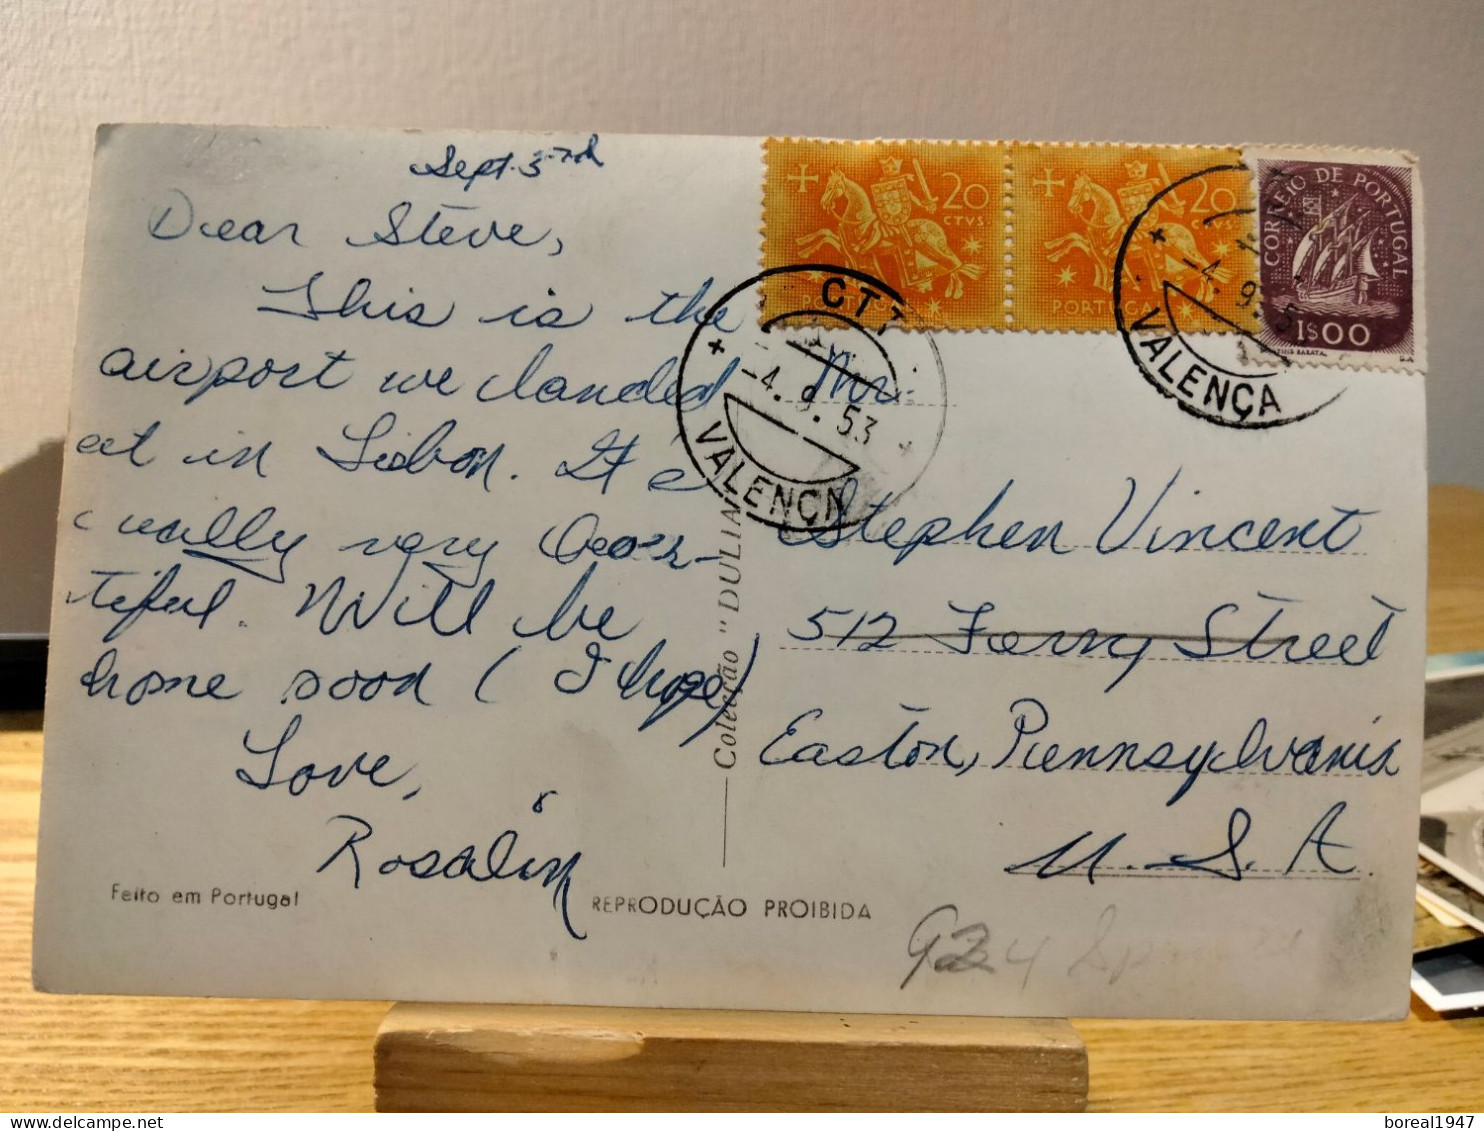 Sept. 3rd
Dear Steve,
This is the
airport we landed
at in Lisbon. It is
really very beau-
tiful. Will be
home soon (I hope)
Love,
Rosalin
Feito em Portugal
REPRODUÇÃO PROIBIDA
Colecção "DULIA"
20
CTVS.
PORTUGAL
20
CTVS.
PORTUGAL
CORREIO DE PORTUGAL
1$00
CTT
-4.9.53
VALENÇA
-4.9.5
VALENÇA
Mr.
Stephen Vincent
512 Ferry Street
Easton, Pennsylvania
U.S.A.
924
boreal1947